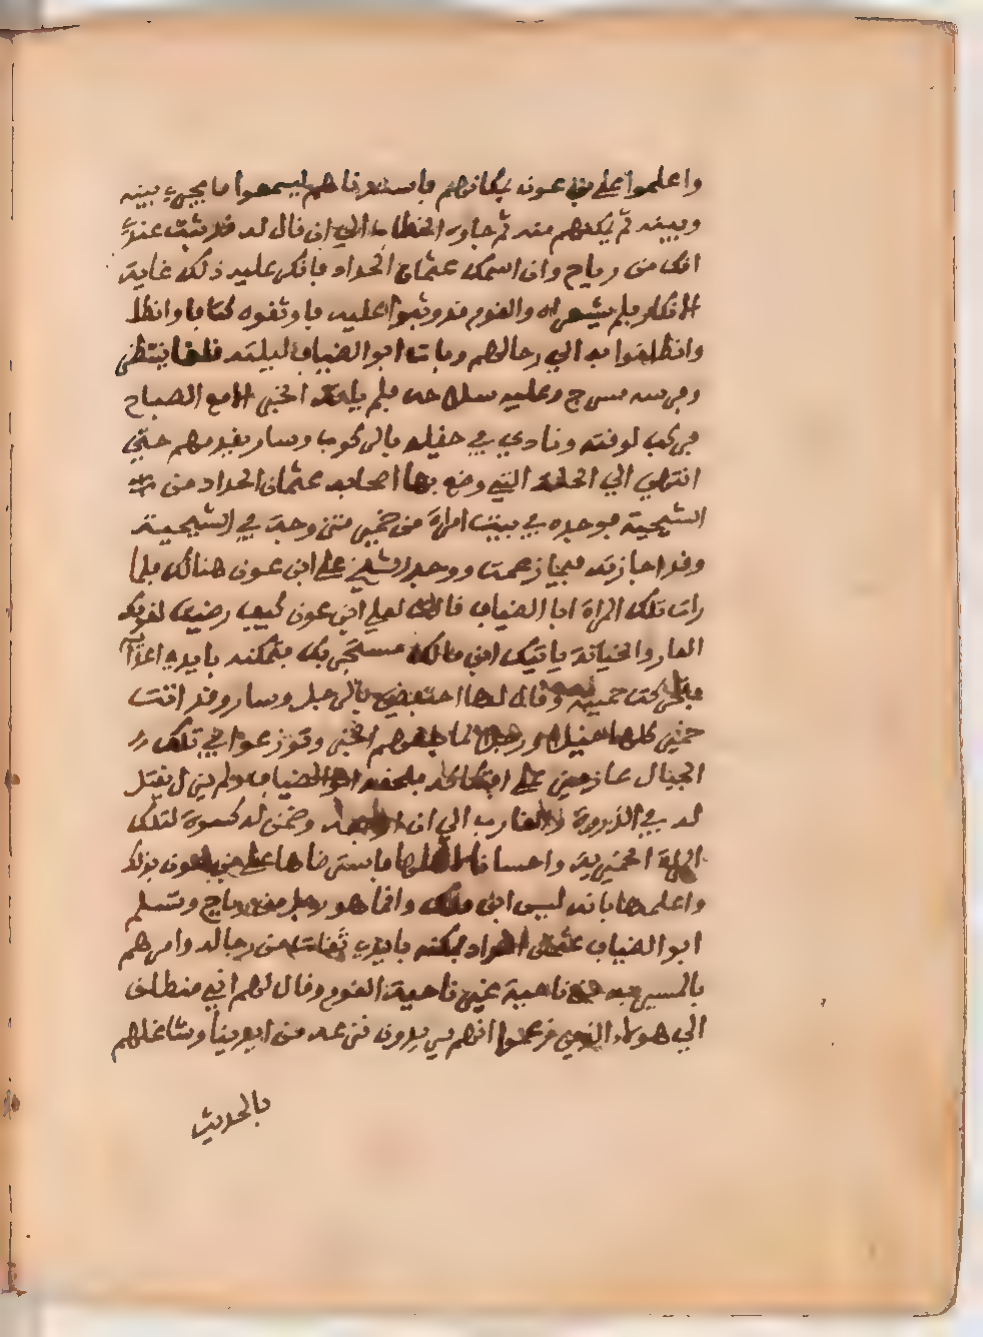 واعلموا علي بن عون بمكانهم فاستدناهم ليسمعوا ما يجري بينه
وبينه ثم يكفهم منه ثم جاوبه الخطاب الي ان قال له قد ثبت عندي
انك من رياح وان اسمك عثمان الحداد فانكر عليه ذلك غاية
الانكار فلم يشعر الا والقوم قد وثبوا عليه فاوثقوه كتافا وانطل
وانطلقوا به الي رحالهم وبات ابو الضياف ليلته ينتظر
وفرسه مسرج وعليه سلاحه فلم يلحقه الخبر الا مع الصباح
فركب لوقته ونادي في خيله بالركوب وسار يقدمهم حتي
انتهي الي الحلة التي وضع بها اصحابه عثمان الحداد من
الشيحية فوجده في بيت امراة من حمير متزوجة في الشيحية
وقد اجازته فيما زعمت ووجد الشيخ علي ابن عون هنالك فلما
رات تلك المراة ابا الضياف قالت لعلي ابن عون كيف رضيت لقومك
العار والخيانة ياتيك ابن مالك مستجير بك فتمكنه بايدي اعدا
حمية وقال لها احتفظي بالرجل وسار وقد اتت
حمير كلها خيلا ورجلا لما بلغهم الخبر وتوزعوا في تلك
الجبال عازمين علي افتكاكه فلحقه ابو الضياف ولم يزل يفتل
له في الذروة والغارب الي ان وضمن له كسوة لتلك
المراة الحميرية واحسانا لاهلها فاسترضاها علي بن عون بذلك
واعلمها بانه ليس ابن مالك وانما هو رجل من رياح وتسلم
ابو الضياف عثمان الحداد مكنه بايدي ثقات من رجاله وامرهم
بالمسير به من ناحية غير ناحية القوم وقال لهم اني منطلق
الي هولاء الذين زعموا انهم يريدون نزعه من ايدينا وشاغلهم
بالحديث